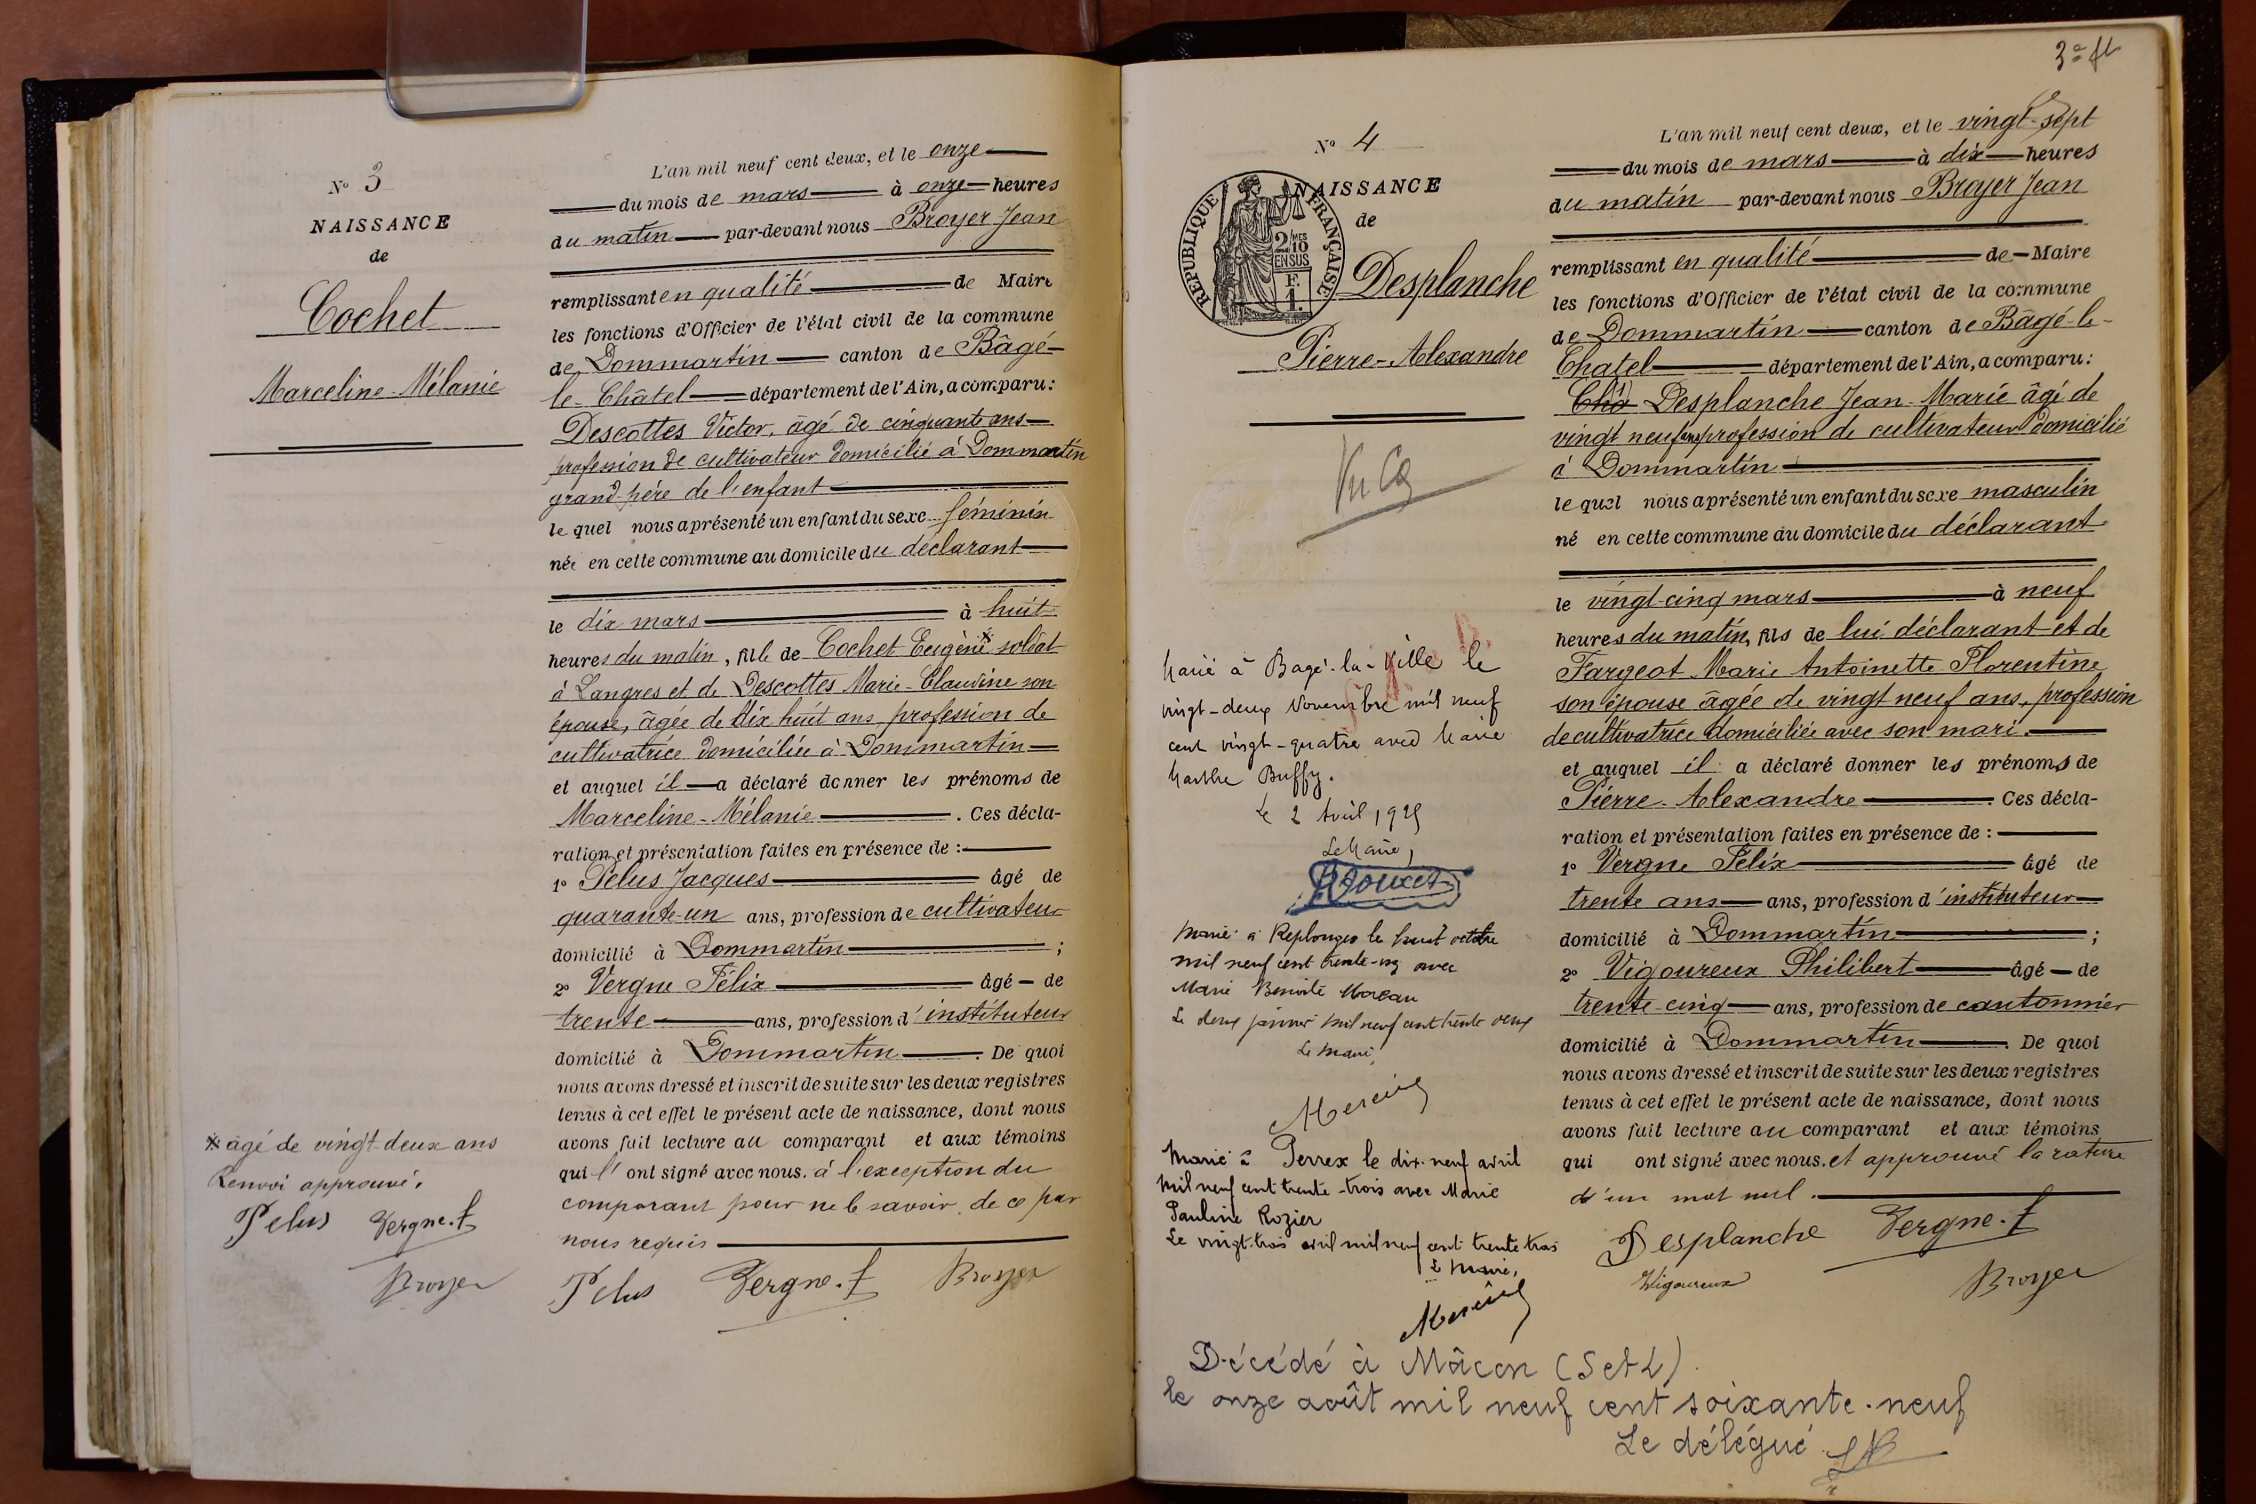 Nº 3
NAISSANCE
de
Cochet
Marceline-Mélanie
L'an mil neuf cent deux, et le onze
du mois de mars à onze heures
du matin par-devant nous Broyer Jean
remplissant en qualité de Maire
les fonctions d'Officier de l'état civil de la commune
de Dommartin canton de Bâgé-
le-Châtel département de l'Ain, a comparu :
Descottes Victor, âgé de cinquante ans
profession de cultivateur domicilié à Dommartin
grand-père de l'enfant
le quel nous a présenté un enfant du sexe féminin
née en cette commune au domicile du déclarant
le dix mars à huit
heures du matin, fille de Cochet Eugène * soldat
à Langres et de Descottes Marie-Claudine son
épouse, âgée de dix huit ans profession de
cultivatrice domiciliée à Dommartin
et auquel il a déclaré donner les prénoms de
Marceline-Mélanie . Ces décla-
ration et présentation faites en présence de :
1º Pelus Jacques âgé de
quarante-un ans, profession de cultivateur
domicilié à Dommartin ;
2º Vergne Félix âgé de
trente ans, profession d'instituteur
domicilié à Dommartin . De quoi
nous avons dressé et inscrit de suite sur les deux registres
tenus à cet effet le présent acte de naissance, dont nous
avons fait lecture au comparant et aux témoins
qui l' ont signé avec nous. à l'exception du
comparant pour ne le savoir, de ce par
nous requis
Pelus Vergne. f Broyer
* âgé de vingt-deux ans
Renvoi approuvé.
Pelus Vergne. f
Broyer
3e ft
Nº 4
NAISSANCE
de
RÉPUBLIQUE FRANÇAISE
2/10 MES
EN SUS
F.
1.
Desplanche
Pierre-Alexandre
Vu
Marié à Bagé-la-Ville le
vingt-deux Novembre mil neuf
cent vingt-quatre avec Marie
Marthe Buffy.
Le 2 Avril 1925
Le Maire,
Marié à Replonges le huit octobre
mil neuf cent trente-un avec
Marie Benoite Moreau
Le deux janvier mil neuf cent trente deux
Le Maire,
Marié à Perrex le dix-neuf avril
mil neuf cent trente-trois avec Marie
Pauline Rozier
Le vingt-trois avril mil neuf cent trente trois
Le Maire,
L'an mil neuf cent deux, et le vingt-sept
du mois de mars à dix heures
du matin par-devant nous Broyer Jean
remplissant en qualité de Maire
les fonctions d'Officier de l'état civil de la commune
de Dommartin canton de Bâgé-le-
Chatel département de l'Ain, a comparu :
Cha Desplanche Jean-Marie âgé de
vingt neuf ans profession de cultivateur domicilié
à Dommartin
le quel nous a présenté un enfant du sexe masculin
né en cette commune au domicile du déclarant
le vingt-cinq mars à neuf
heures du matin, fils de lui déclarant et de
Fargeot Marie Antoinette Florentine
son épouse âgée de vingt neuf ans, profession
de cultivatrice domiciliée avec son mari.
et auquel il a déclaré donner les prénoms de
Pierre-Alexandre . Ces décla-
ration et présentation faites en présence de :
1º Vergne Félix âgé de
trente ans ans, profession d'instituteur
domicilié à Dommartin ;
2º Vigoureux Philibert âgé de
trente-cinq ans, profession de cantonnier
domicilié à Dommartin . De quoi
nous avons dressé et inscrit de suite sur les deux registres
tenus à cet effet le présent acte de naissance, dont nous
avons fait lecture au comparant et aux témoins
qui ont signé avec nous. et approuvé la rature
d'un mot nul.
Desplanche Vergne. f
Vigoureux Broyer
Décédé à Mâcon (S et L)
le onze août mil neuf cent soixante-neuf
Le délégué